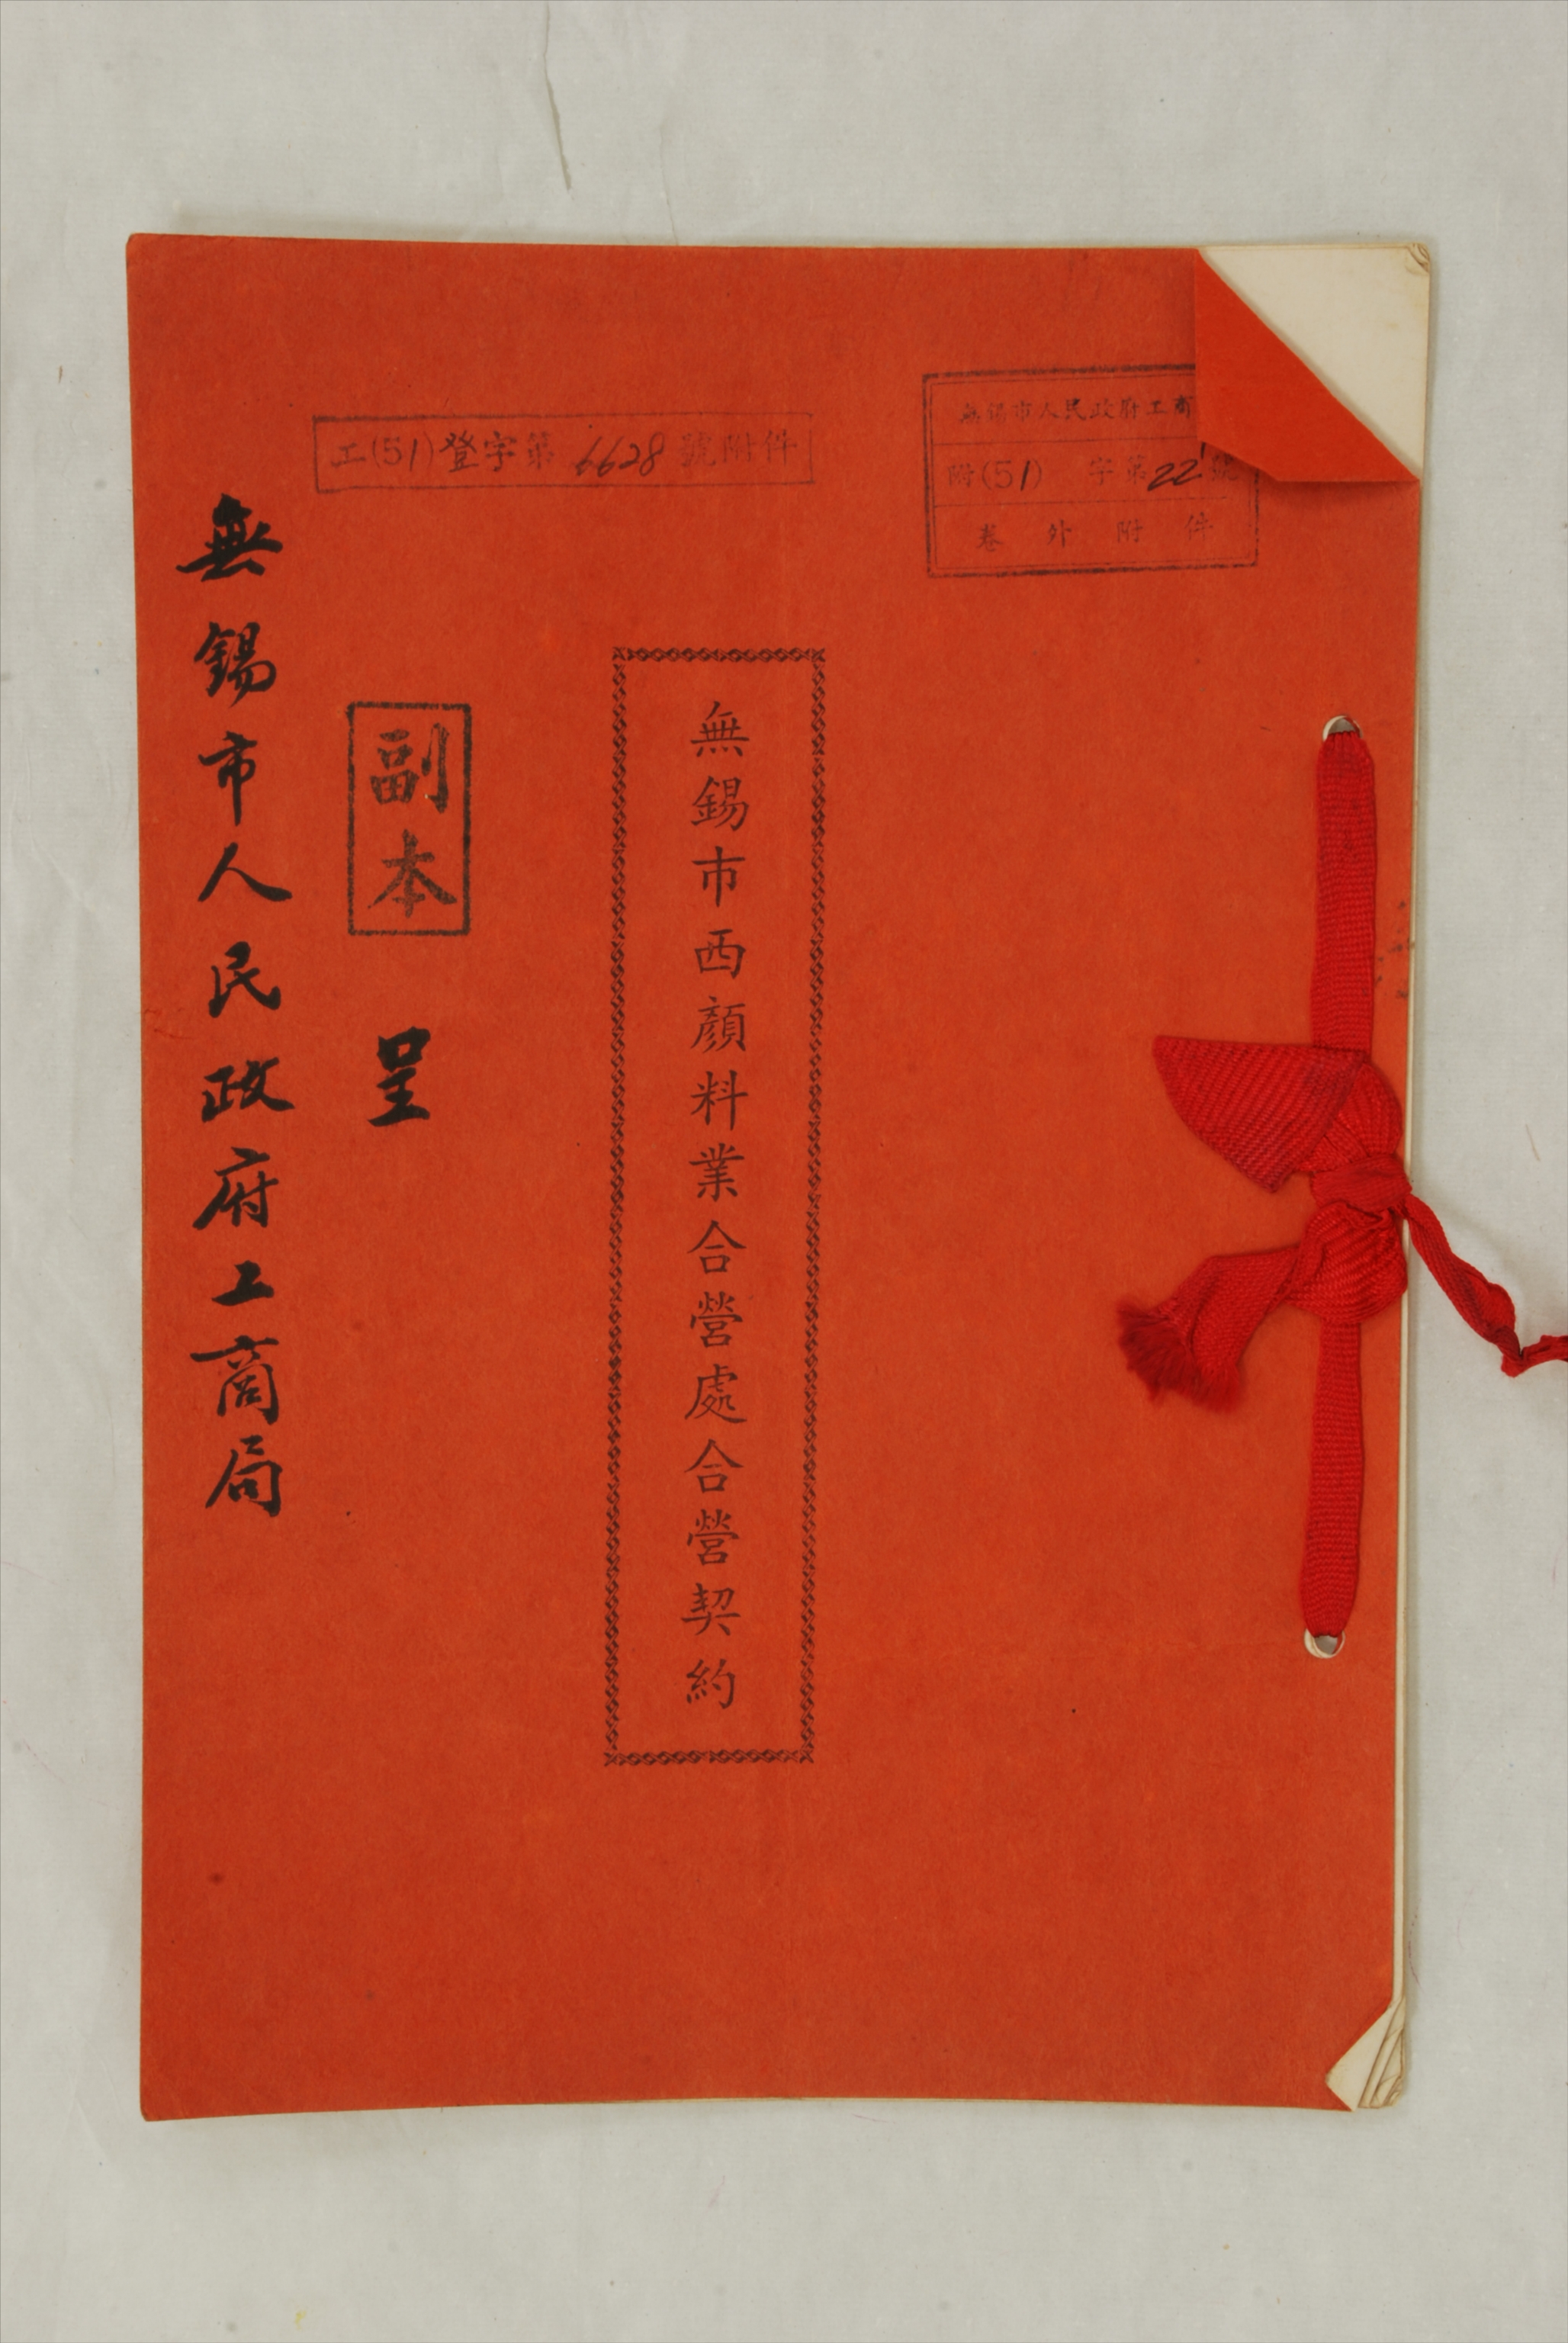 無錫市人民政府工商
附(51) 字第22號
卷外附件
工(51)登字第6628號附件
無錫市西顏料業合營處合營契約
副本
呈
無錫市人民政府工商局